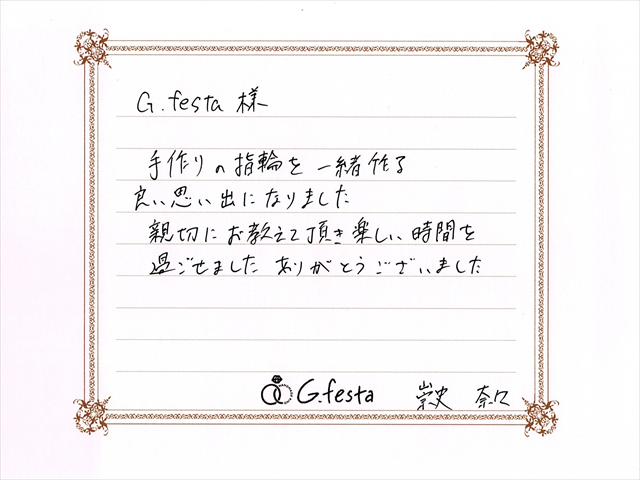 G.festa 様
手作りの指輪を一緒作る
良い思い出になりました
親切にお教えて頂き楽しい時間を
過ごせました ありがとうございました
G.festa 崇史 奈々